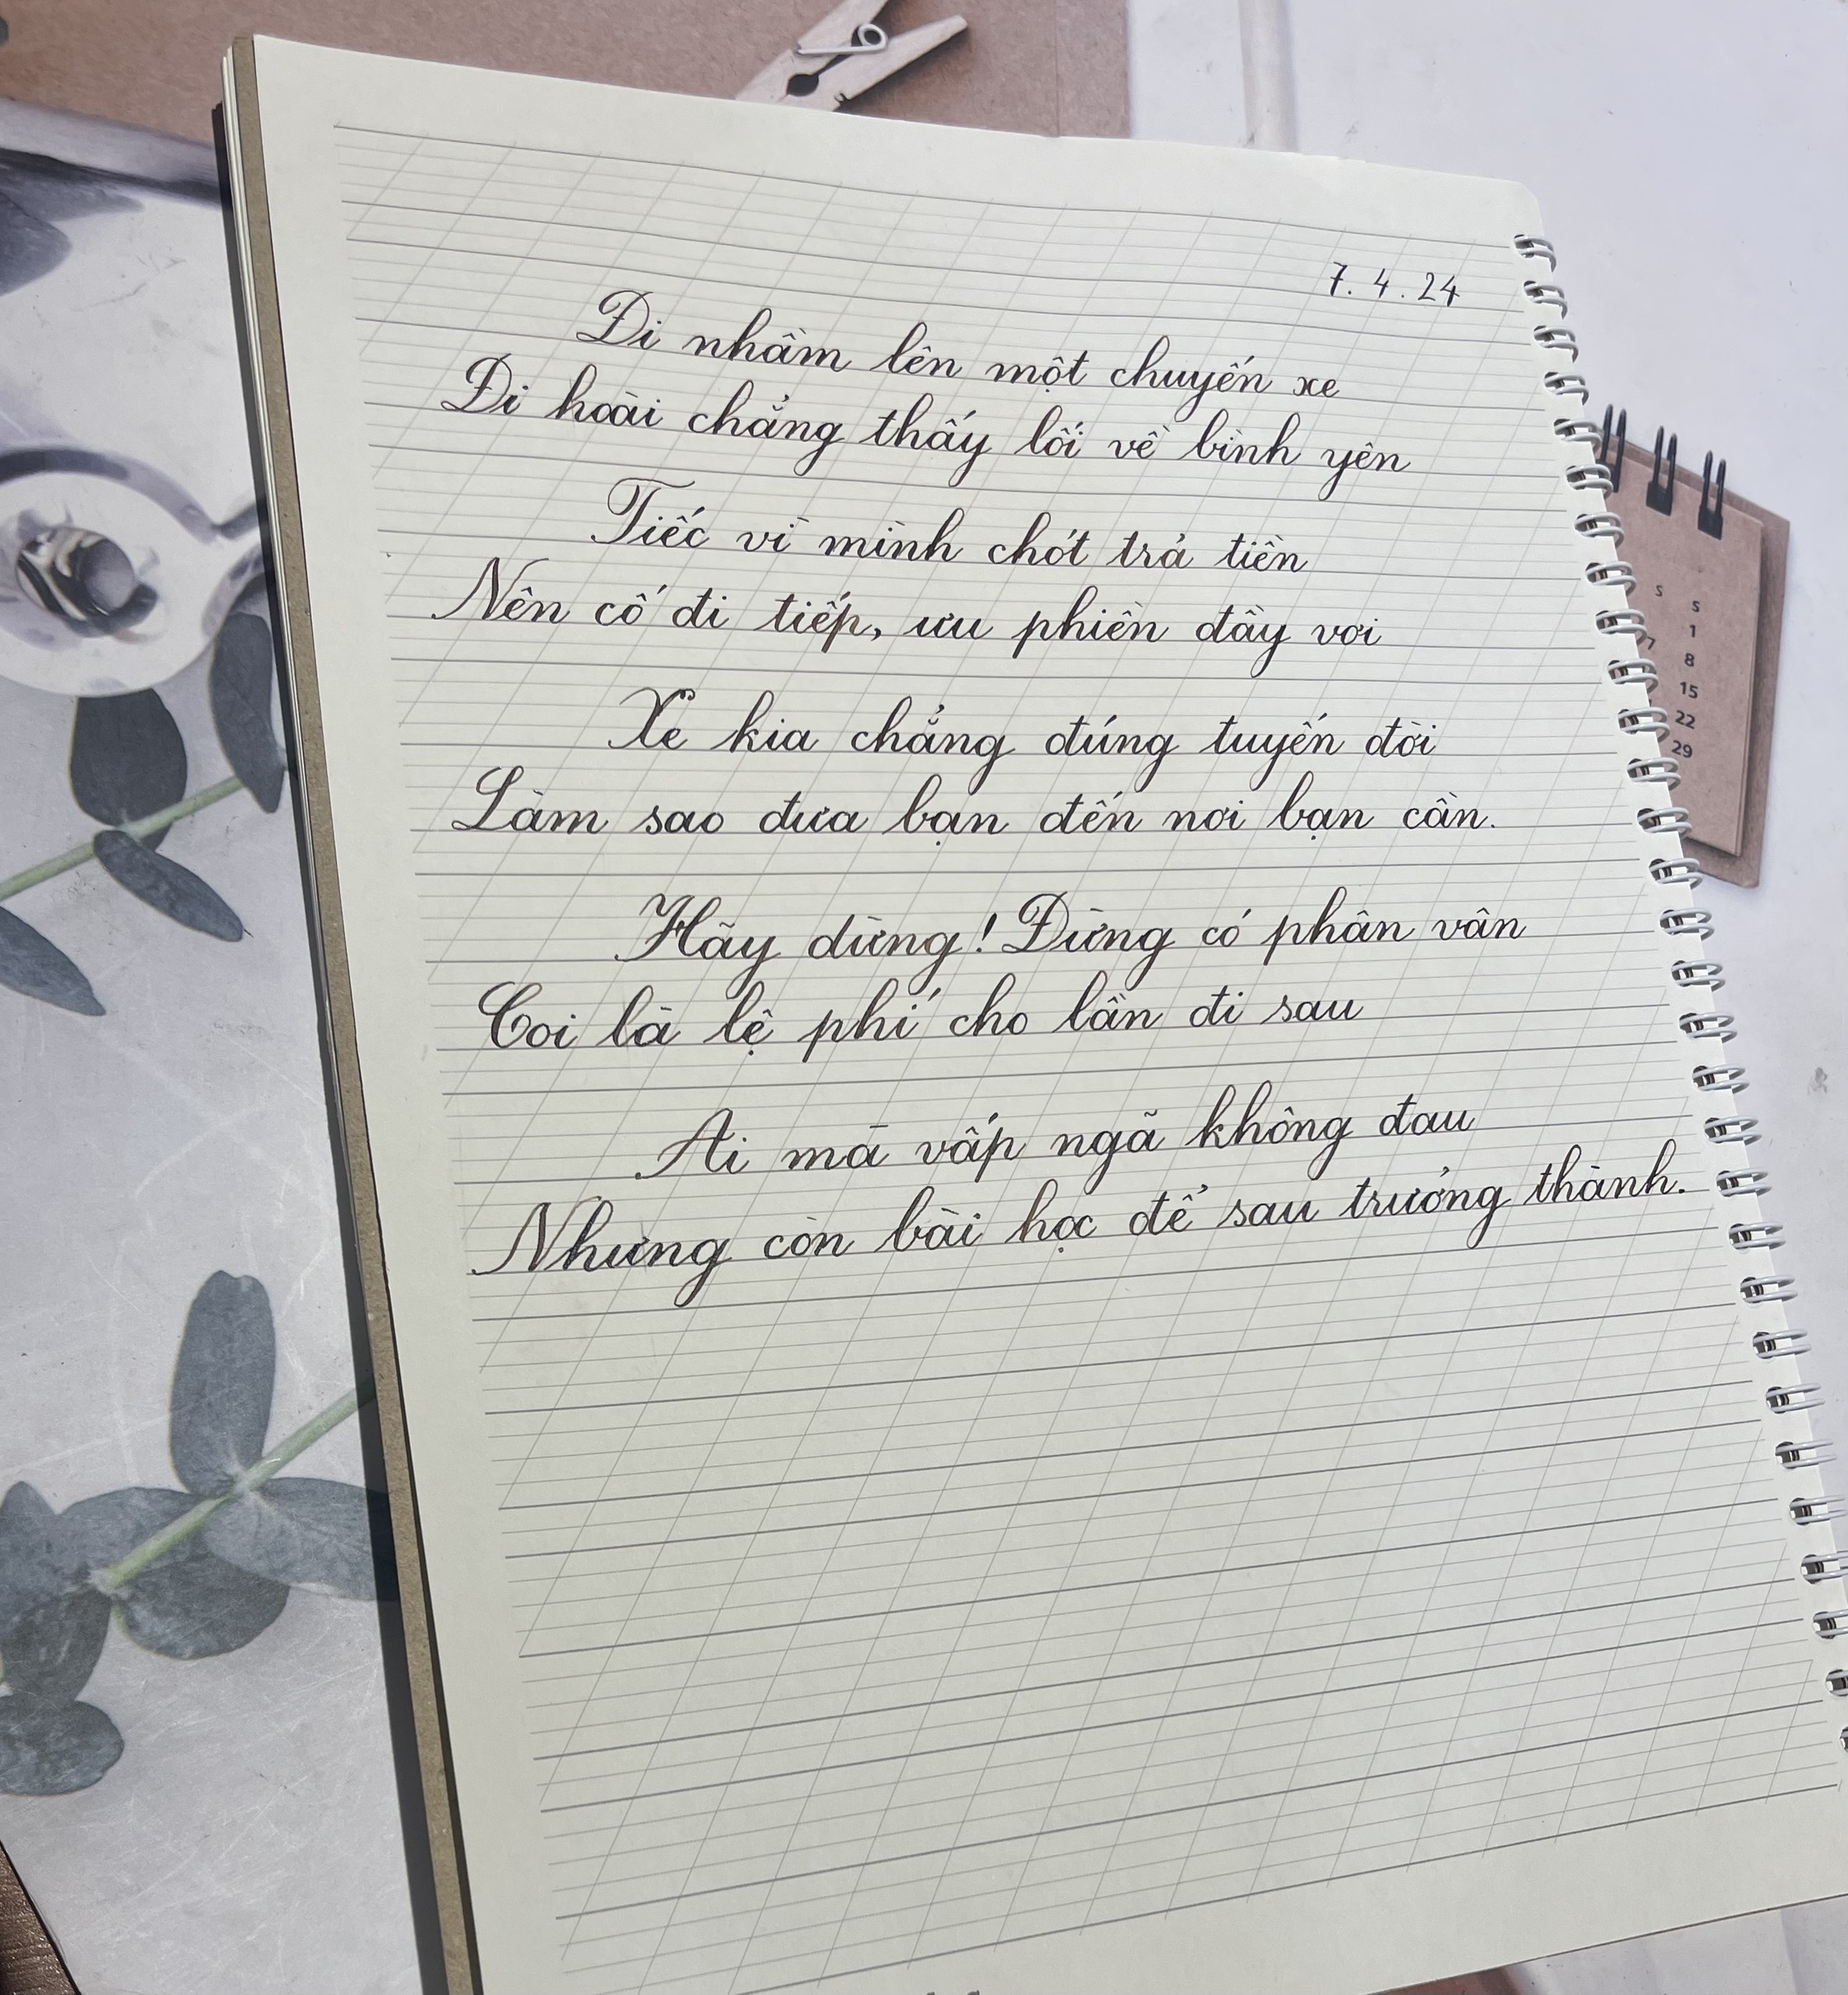 7.4.24
Đi nhầm lên một chuyến xe
Đi hoài chẳng thấy lối về bình yên
Tiếc vì mình chót trả tiền
Nên cố đi tiếp, ưu phiền đầy vơi
Xe kia chẳng đúng tuyến đời
Làm sao đưa bạn đến nơi bạn cần.
Hãy dừng! Đừng có phân vân
Coi là lệ phí cho lần đi sau
Ai mà vấp ngã không đau
Nhưng còn bài học để sau trưởng thành.
S S
1
7 8
15
22
29